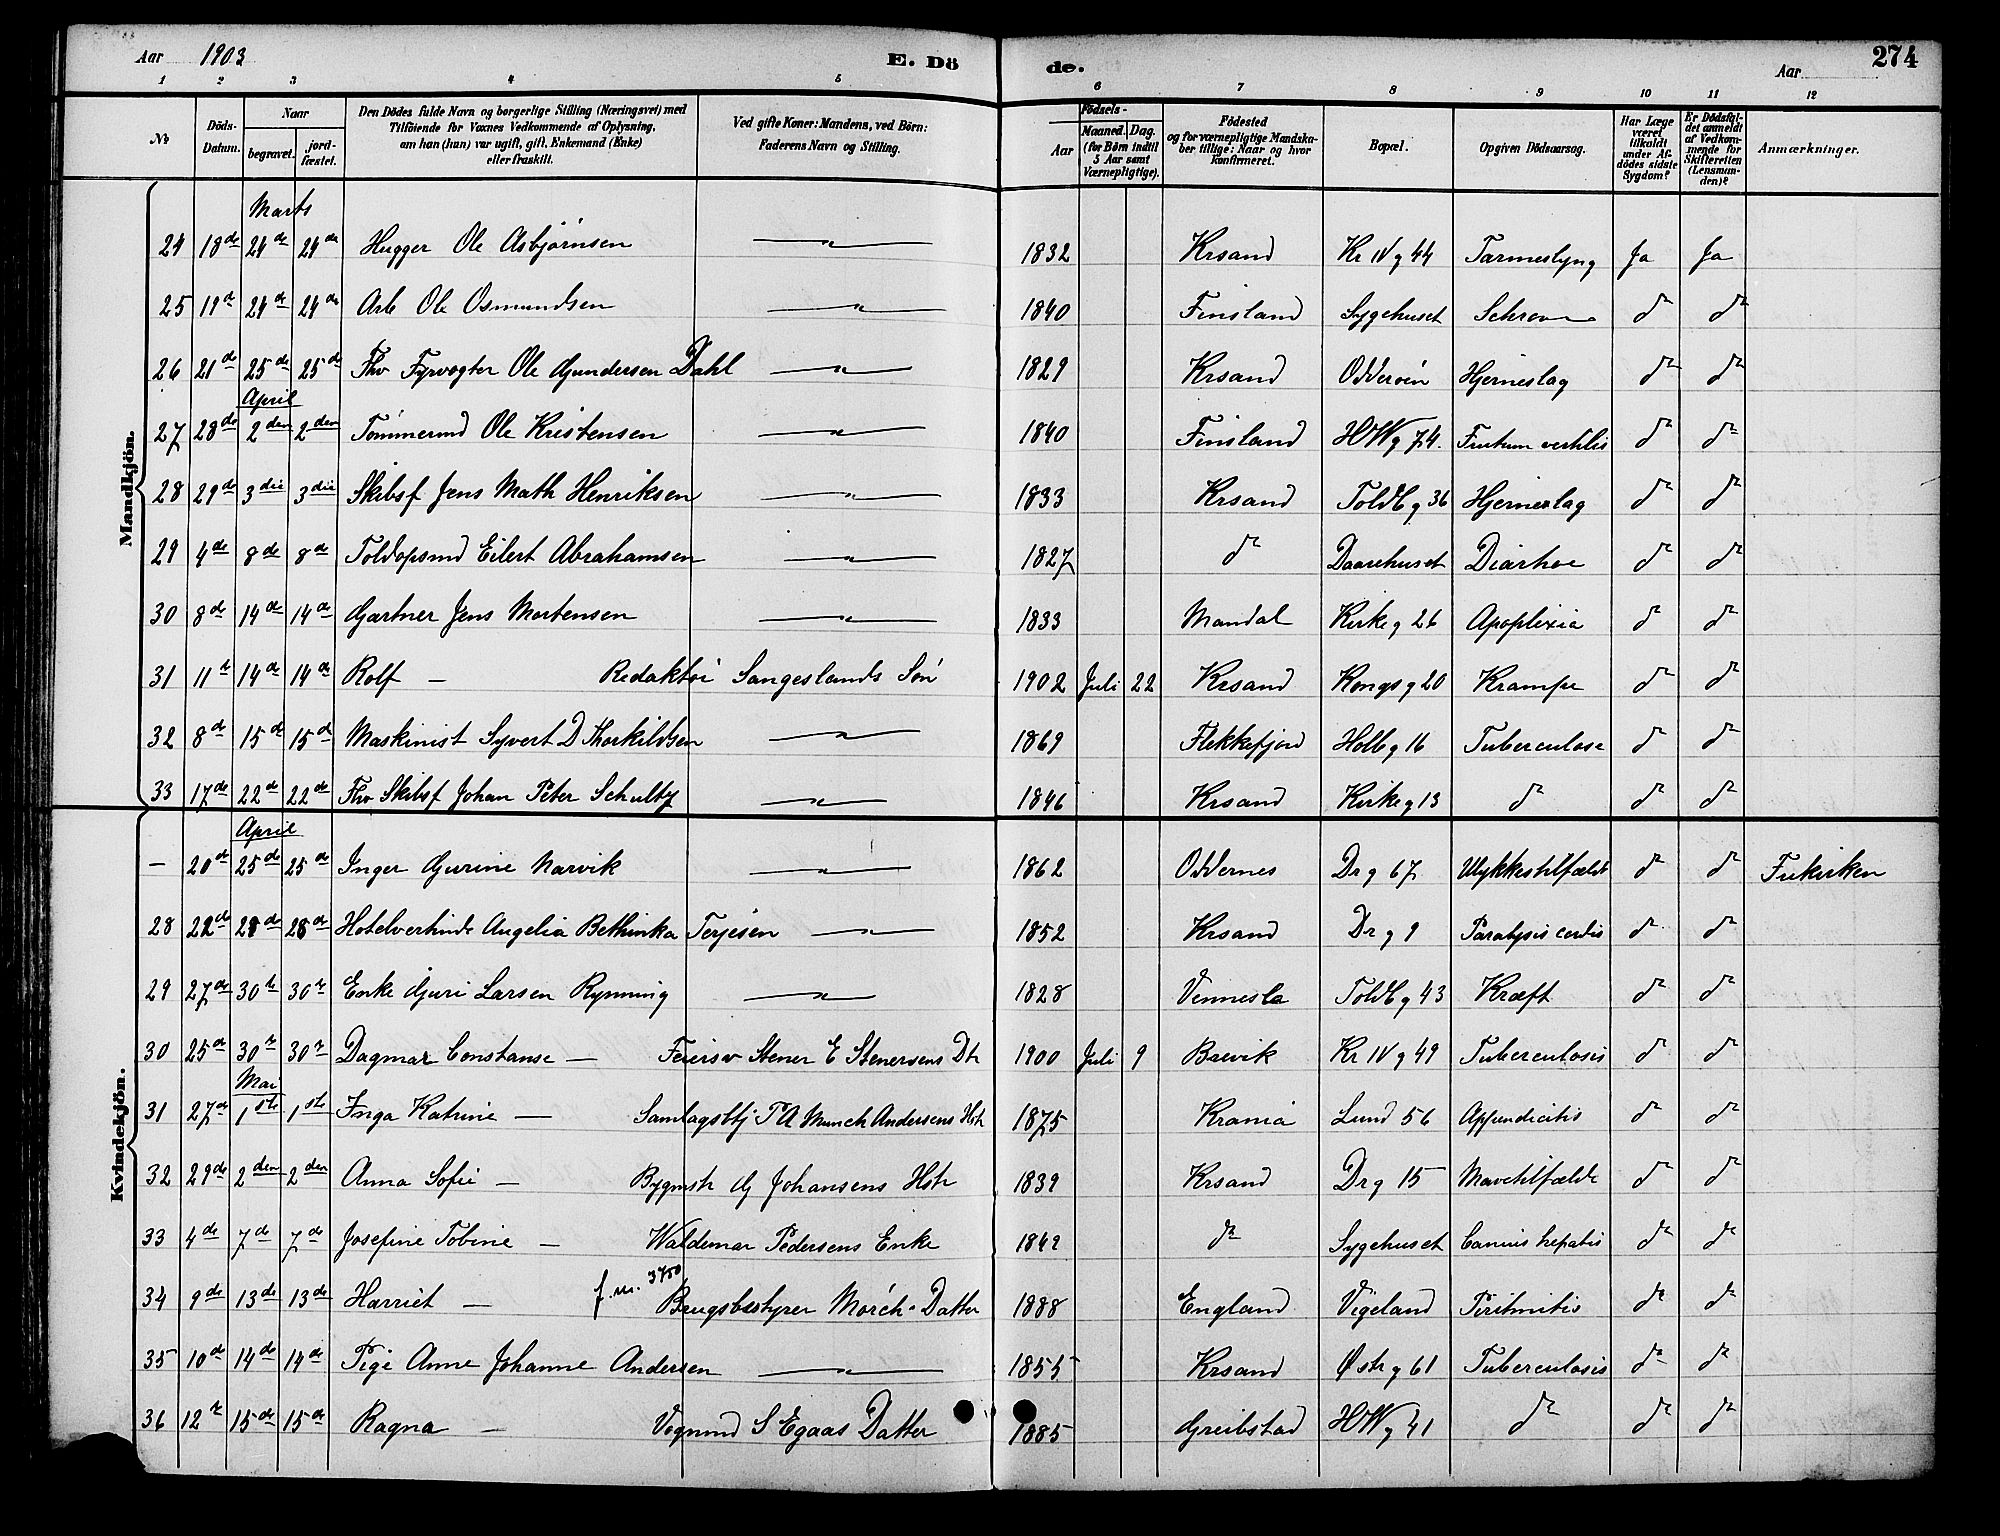 Aar 1903 E. Dö de. Aar 274
1 2 3 4 5 6 7 8 9 10 11 12
No Döds-Datum. Naar begravet. jord-fæstet. Den Dödes fulde Navn og borgerlige Stilling (Næringsvei) med Tilföiende for Voxnes Vedkommende af Oplysning, om han (hun) var ugift, gift, Enkemand (Enke) eller fraskilt. Ved gifte Koner: Mandens, ved Börn: Faderens Navn og Stilling. Födsels- Aar Maaned. Dag. (for Börn indtil 5 Aar samt Værnepligtige). Födested og for værnepligtige Mandskaber tillige: Naar og hvor konfirmeret. Bopæl. Opgiven Dödsaarsag. Har Læge været tilkaldt under Afdödes sidste Sygdom? Er Dödsfaldet anmeldt af Vedkommende for Skifteretten (Lensmanden)? Anmærkninger.
Mandkjön.
Marts
24 18de 24de 24de Hugger Ole Asbjørnsen — " — 1832 Krsand Kr IV g 44 Tarmeslyng Ja Ja
25 19d 24de 24de Arb Ole Osmundsen — " — 1840 Finsland Sygehuset d° d°
26 21d 25de 25de Fhv Fyrvogter Ole Gundersen Dahl — " — 1829 Krsand Odderöen Hjerneslag d° d°
April
27 28de 2den 2den Tømmermd Ole Kristensen — " — 1840 Finsland HWg 74. d° d°
28 29de 3die 3die Skibsf Jens Math Henriksen — " — 1833 Krsand Toldb g 36 Hjerneslag d° d°
29 4de 8de 8de Toldopsmd Eilert Abrahamsen — " — 1827 d° Daarehuset Diarhoe d° d°
30 8de 14de 14de Gartner Jens Mortensen — " — 1833 Mandal Kirke g 26 Apoplexia d° d°
31 11te 14de 14de Rolf — Redaktør Sangeslands Søn 1902 Juli 22 Krsand Kongs g 20 Krampe d° d°
32 8de 15de 15de Maskinist Syvert D Thorkildsen — " — 1869 Flekkefjord Holb g 16 Tuberculose d° d°
33 17de 22de 22de Fhv Skibsf Johan Peter Schultz — " — 1846 Krsand Kirke g 13 d° d° d°
Kvindekjön.
April
— 20de 25de 25de Inger Gurine Narvik — " — 1862 Oddernes Dr g 67 Ulykkestilfælde d° d° Frikirken
28 22de 28de 28de Hotelvertinde Angelia Bethinka Terjesen — " — 1852 Krsand Dr g 9 Paralysis cordis d° d°
29 27de 30te 30te Enke Guri Larsen Rynning — " — 1828 Vennesla Toldb g 43 Kræft d° d°
30 25de 30te 30te Dagmar Constanse — Feiersv Stener E Stenersens Dtr 1900 Juli 9 Brevik Kr IV g 49 Tuberculosis d° d°
Mai
31 27de 1ste 1ste Inga Katrine — Samlagsbtj T A Munch Andersens Hstr 1875 Krania Lund 56 Appendicitis d° d°
32 29de 2den 2den Anna Sofie — Bygmstr G Johansens Hstr 1839 Krsand Dr g 15 Mavetilfælde d° d°
33 4de 7de 7de Josefine Tobine — Waldemar Pedersens Enke 1849 d° Sygehuset hepatis d° d°
34 9de 13de 13de Harriet — f. m. 3750 Brugsbestyrer Mørch's Datter 1888 England Vigeland Peritonitis d° d°
35 10de 14de 14de Pige Anne Johanne Andersen — " — 1855 Krsand Østr g 61 Tuberculosis d° d°
36 12te 15de 15de Ragna — Vognmd S Egaas Datter 1885 Greibstad HWg 41 d° d° d°